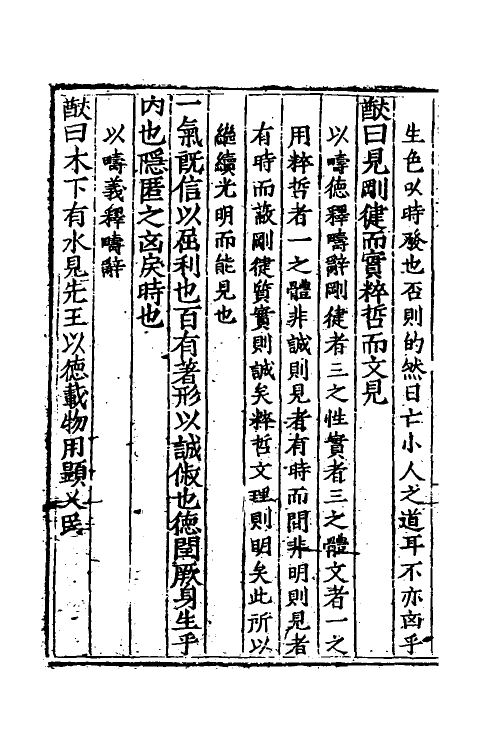 生色以時發也否則的然日亡小人之道耳不亦凶乎
猷曰見剛健而實粹哲而文見
以疇德釋疇辭剛健者三之性實者三之體文者一之
用粹哲者一之體非誠則見者有時而間非明則見者
有時而蔽剛健質實則誠矣粹哲文理則明矣此所以
繼續光明而能見也
一氣旣信以屈利也百有著形以誠俶也德閏厥身生乎
內也隱匿之凶戾時也
以疇義釋疇辭
猷曰木下有水見先王以德載物用顯乂民